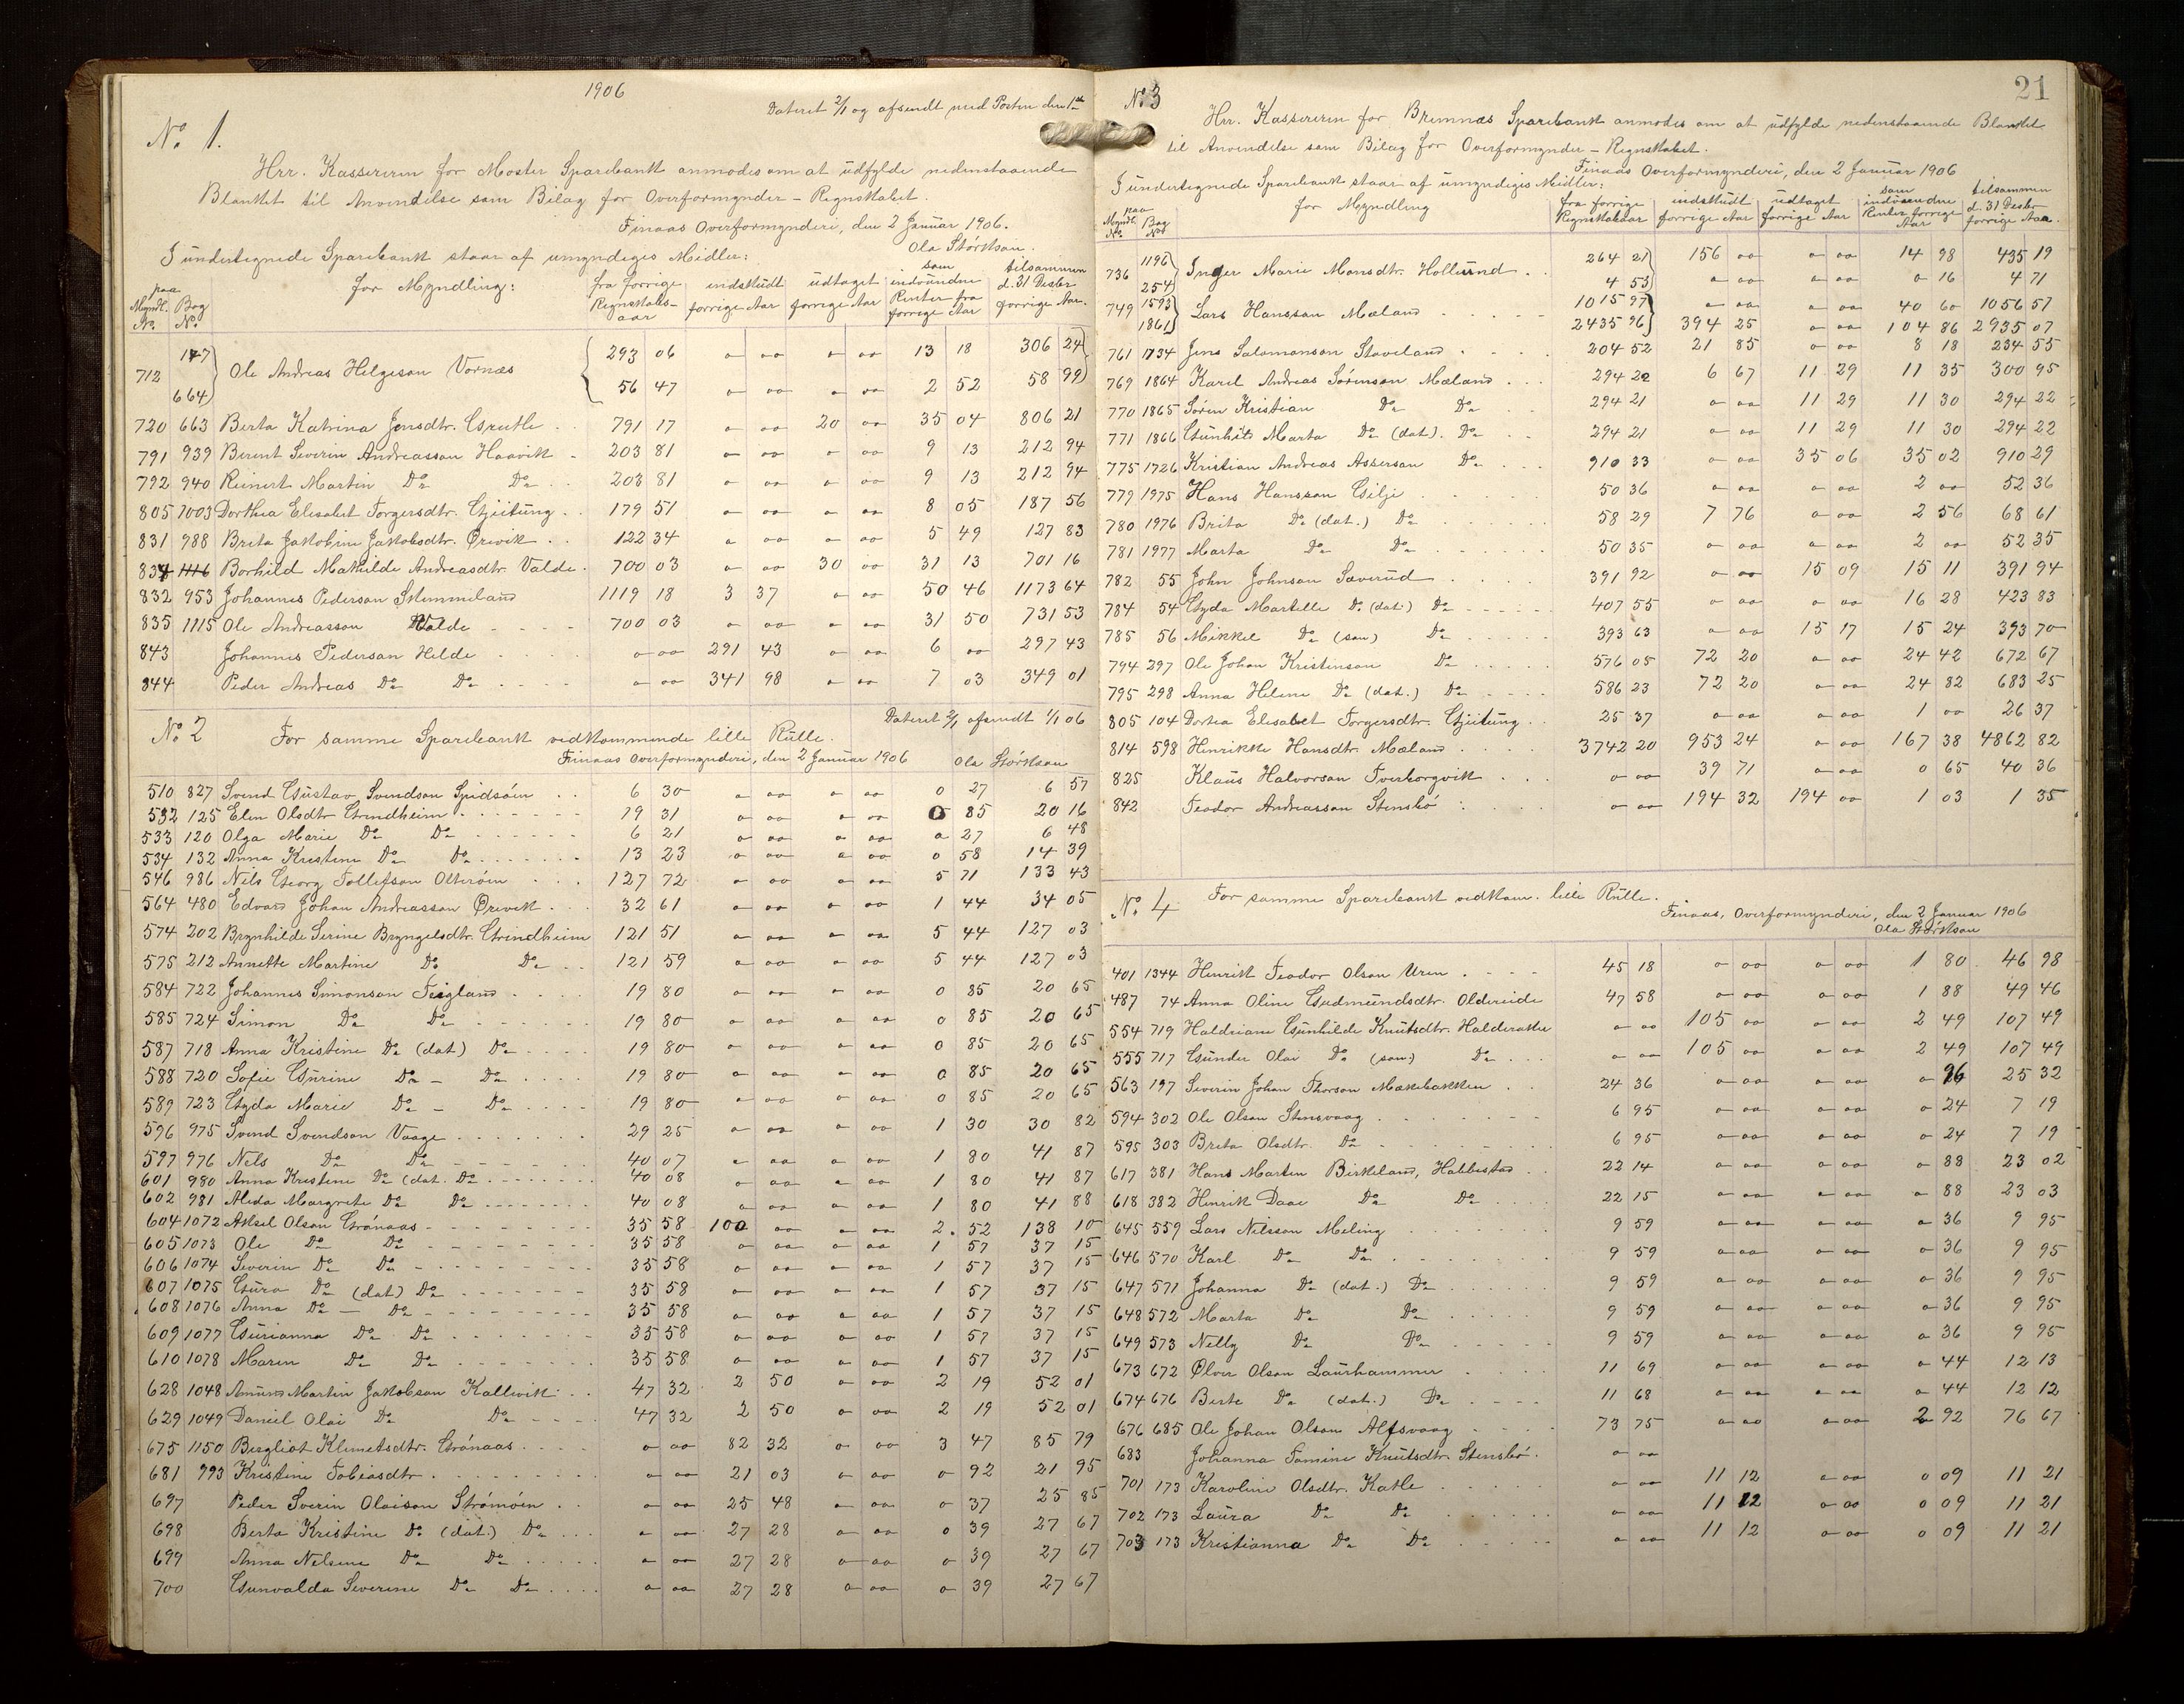 1906
Dateret 2/1 og afsendt med Posten den 1ste
No. 1.
Hrr. Kassereren for Moster Sparebank anmodes om at udfylde nedenstaaende
Blanket til Anvendelse som Bilag for Overformynder-Regnskabet.
Finaas Overformynderi, den 2 Januar 1906.
Ola Størkson.
I undertegnede Sparebank staar af umyndiges Midler:
paa Myndl. No. | Bog No. | for Myndling: | fra forrige Regnskabsaar | indskudt forrige Aar | udtaget forrige Aar | som indvundne Renter fra forrige Aar | tilsammen d. 31 Desbr forrige Aar.
712 147 664 Ole Andreas Helgeson Vornæs 293 06 o oo o oo 13 18 306 24
56 47 o oo o oo 2 52 58 99
720 663 Berta Katrina Jensdtr. Grutle 791 17 o oo 20 oo 35 04 806 21
791 939 Berent Severin Andreasson Haavik 203 81 o oo o oo 9 13 212 94
792 940 Reinert Martin Do Do 203 81 o oo o oo 9 13 212 94
805 1003 Dorthea Elisabet Torgersdtr. Gjeitung 179 51 o oo o oo 8 05 187 56
831 988 Brita Jakobine Jakobsdtr. Ørevik 122 34 o oo o oo 5 49 127 83
834 1116 Borhild Mathilde Andreasdtr. Valde 700 03 o oo 30 oo 31 13 701 16
832 953 Johannes Pederson Skimmeland 1119 18 3 37 o oo 50 46 1173 64
835 1115 Ole Andreasson Valde 700 03 o oo o oo 31 50 731 53
843 Johannes Pederson Helde o oo 291 43 o oo 6 oo 297 43
844 Peder Andreas Do Do o oo 341 98 o oo 7 03 349 01
No. 2 For samme Sparebank vedkommende lille Rulle. Dateret 2/1 afsendt 1/1 06
Finaas Overformynderi, den 2 Januar 1906 Ola Størkson
510 827 Svend Gustav Svendson Spidsøen 6 30 o oo o oo 0 27 6 57
532 125 Elen Olsdtr Grindheim 19 31 o oo o oo 0 85 20 16
533 120 Olga Marie Do Do 6 21 o oo o oo o 27 6 48
534 132 Anna Kristine Do Do 13 23 o oo o oo 0 58 14 39
546 986 Nils Georg Tollefson Otterøen 127 72 o oo o oo 5 71 133 43
564 480 Edvard Johan Andreasson Ørevik 32 61 o oo o oo 1 44 34 05
574 202 Brynhilde Serine Bryngelsdtr. Grindheim 121 51 o oo o oo 5 44 127 03
575 212 Annette Martine Do Do 121 59 o oo o oo 5 44 127 03
584 722 Johannes Simonson Teigland 19 80 o oo o oo 0 85 20 65
585 724 Simon Do Do 19 80 o oo o oo 0 85 20 65
587 718 Anna Kristine Do (dat) Do 19 80 o oo o oo 0 85 20 65
588 720 Sofie Gurine Do Do 19 80 o oo o oo 0 85 20 65
589 723 Gyda Marie Do Do 19 80 o oo o oo 0 85 20 65
596 975 Svend Svendson Vaage 29 25 o oo o oo 1 30 30 82
597 976 Nels Do Do 40 07 o oo o oo 1 80 41 87
601 980 Anna Kristine Do (dat. Do 40 08 o oo o oo 1 80 41 87
602 981 Alida Margrete Do Do 40 08 o oo o oo 1 80 41 88
604 1072 Aksel Olson Grønaas 35 58 100 oo o oo 2 52 138 10
605 1073 Ole Do Do 35 58 o oo o oo 1 57 37 15
606 1074 Severin Do Do 35 58 o oo o oo 1 57 37 15
607 1075 Gura Do (dat) Do 35 58 o oo o oo 1 57 37 15
608 1076 Anna Do Do 35 58 o oo o oo 1 57 37 15
609 1077 Gurianna Do Do 35 58 o oo o oo 1 57 37 15
610 1078 Maren Do Do 35 58 o oo o oo 1 57 37 15
628 1048 Amund Martin Jakobson Kallevik 47 32 2 50 o oo 2 19 52 01
629 1049 Daniel Olai Do Do 47 32 2 50 o oo 2 19 52 01
675 1150 Bergliot Klemetsdtr. Grønaas o oo 82 32 o oo 3 47 85 79
681 993 Kristine Tobiasdtr. o oo 21 03 o oo o 92 21 95
697 Peder Sverin Olaison Strømøen o oo 25 48 o oo o 37 25 85
698 Berta Kristine Do (dat.) Do o oo 27 28 o oo o 39 27 67
699 Anna Nelsine Do Do o oo 27 28 o oo o 39 27 67
700 Gunvalda Severine Do Do o oo 27 28 o oo o 39 27 67
21
No. 3
Hrr. Kassereren for Bremnæs Sparebank anmodes om at udfylde nedenstaaende Blanket
til Anvendelse som Bilag for Overformynder-Regnskabet.
Finaas Overformynderi, den 2 Januar 1906
I undertegnede Sparebank staar af umyndiges Midler:
paa Myndl. No. | Bog No. | for Myndling | fra forrige Regnskabsaar | indskudt forrige Aar | udtaget forrige Aar | som indvundne Renter forrige Aar | tilsammen d. 31 Desbr forrige Aar.
736 1196 254 Inger Marie Monsdtr. Hollund 264 21 156 oo o oo 14 98 435 19
4 53 o oo o oo o 16 4 71
749 1593 1861 Lars Hansson Mæland 1015 97 o oo o oo 40 60 1056 57
2435 96 394 25 o oo 104 86 2935 07
761 1734 Jens Salomonson Staveland 204 52 21 85 o oo 8 18 234 55
769 1864 Karil Andreas Sørenson Mæland 294 22 6 67 11 29 11 35 300 95
770 1865 Søren Kristian Do Do 294 21 o oo 11 29 11 30 294 22
771 1866 Gunhild Marta Do (dat). Do 294 21 o oo 11 29 11 30 294 22
775 1726 Kristian Andreas Asserson Do 910 33 o oo 35 06 35 02 910 29
779 1975 Hans Hansson Gilje 50 36 o oo o oo 2 oo 52 36
780 1976 Brita Do (dat.) Do 58 29 7 76 o oo 2 56 68 61
781 1977 Marta Do Do 50 35 o oo o oo 2 oo 52 35
782 55 John Johnson Sæverud 391 92 o oo 15 09 15 11 391 94
784 54 Gyda Martelle Do (dat) Do 407 55 o oo o oo 16 28 423 83
785 56 Mikkel Do (søn) Do 393 63 o oo 15 17 15 24 393 70
794 297 Ole Johan Kristenson Do 576 05 72 20 o oo 24 42 672 67
795 298 Anna Helene Do (dat.) Do 586 23 72 20 o oo 24 82 683 25
805 104 Dortea Elisabet Torgersdtr. Gjeitung 25 37 o oo o oo 1 oo 26 37
814 598 Henrikke Hansdtr. Mæland 3742 20 953 24 o oo 167 38 4862 82
825 Klaus Halvorson Tverborgvik o oo 39 71 o oo 0 65 40 36
842 Teodor Andreasson Stensbø o oo 194 32 194 oo 1 03 1 35
No. 4 For samme Sparebank vedkom. lille Rulle.
Finaas, Overformynderi, den 2 Januar 1906
Ola Størkson
401 1344 Henrik Teodor Olson Uren 45 18 o oo o oo 1 80 46 98
487 74 Anna Oline Gudmundsdtr. Oldereide 47 58 o oo o oo 1 88 49 46
554 719 Haldriane Gunhilde Knutsdtr. Halderaker o oo 105 oo o oo 2 49 107 49
555 717 Gunder Olai Do (søn) Do o oo 105 oo o oo 2 49 107 49
563 197 Severin Johan Thorson Mækebakken 24 36 o oo o oo o 96 25 32
594 302 Ole Olson Stensvaag 6 95 o oo o oo o 24 7 19
595 303 Breta Olsdtr. Do 6 95 o oo o oo o 24 7 19
617 381 Hans Marten Birkeland, Habbestad 22 14 o oo o oo o 88 23 02
618 382 Henrik Daae Do Do 22 15 o oo o oo o 88 23 03
645 559 Lars Nilsson Meling 9 59 o oo o oo o 36 9 95
646 570 Karl Do Do 9 59 o oo o oo o 36 9 95
647 571 Johanna Do (dat.) Do 9 59 o oo o oo o 36 9 95
648 572 Marta Do Do 9 59 o oo o oo o 36 9 95
649 573 Nelly Do Do 9 59 o oo o oo o 36 9 95
673 672 Ølver Olson Laurhammer 11 69 o oo o oo o 44 12 13
674 676 Birte Do (dat.) Do 11 68 o oo o oo o 44 12 12
676 685 Ole Johan Olson Alfsvaag 73 75 o oo o oo 2 92 76 67
683 Johanna Tomine Knutsdtr. Stensbø o oo
701 173 Karoline Olsdtr. Katle o oo 11 12 o oo 0 09 11 21
702 173 Laura Do Do o oo 11 12 o oo 0 09 11 21
703 173 Kristianna Do Do o oo 11 12 o oo 0 09 11 21